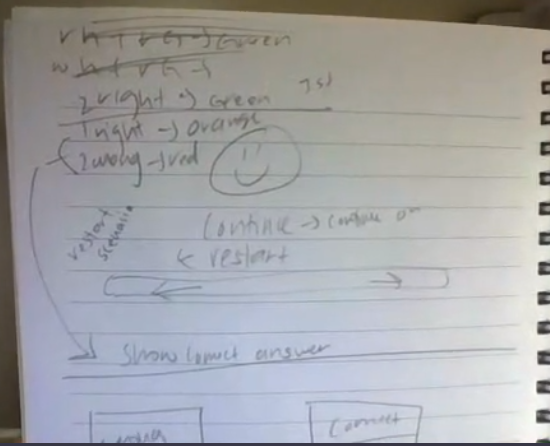 2 right → Green 1st
1 right → orange
2 wrong → red
restart scenario
Continue → continue on
< restart
Show correct answer
Correct